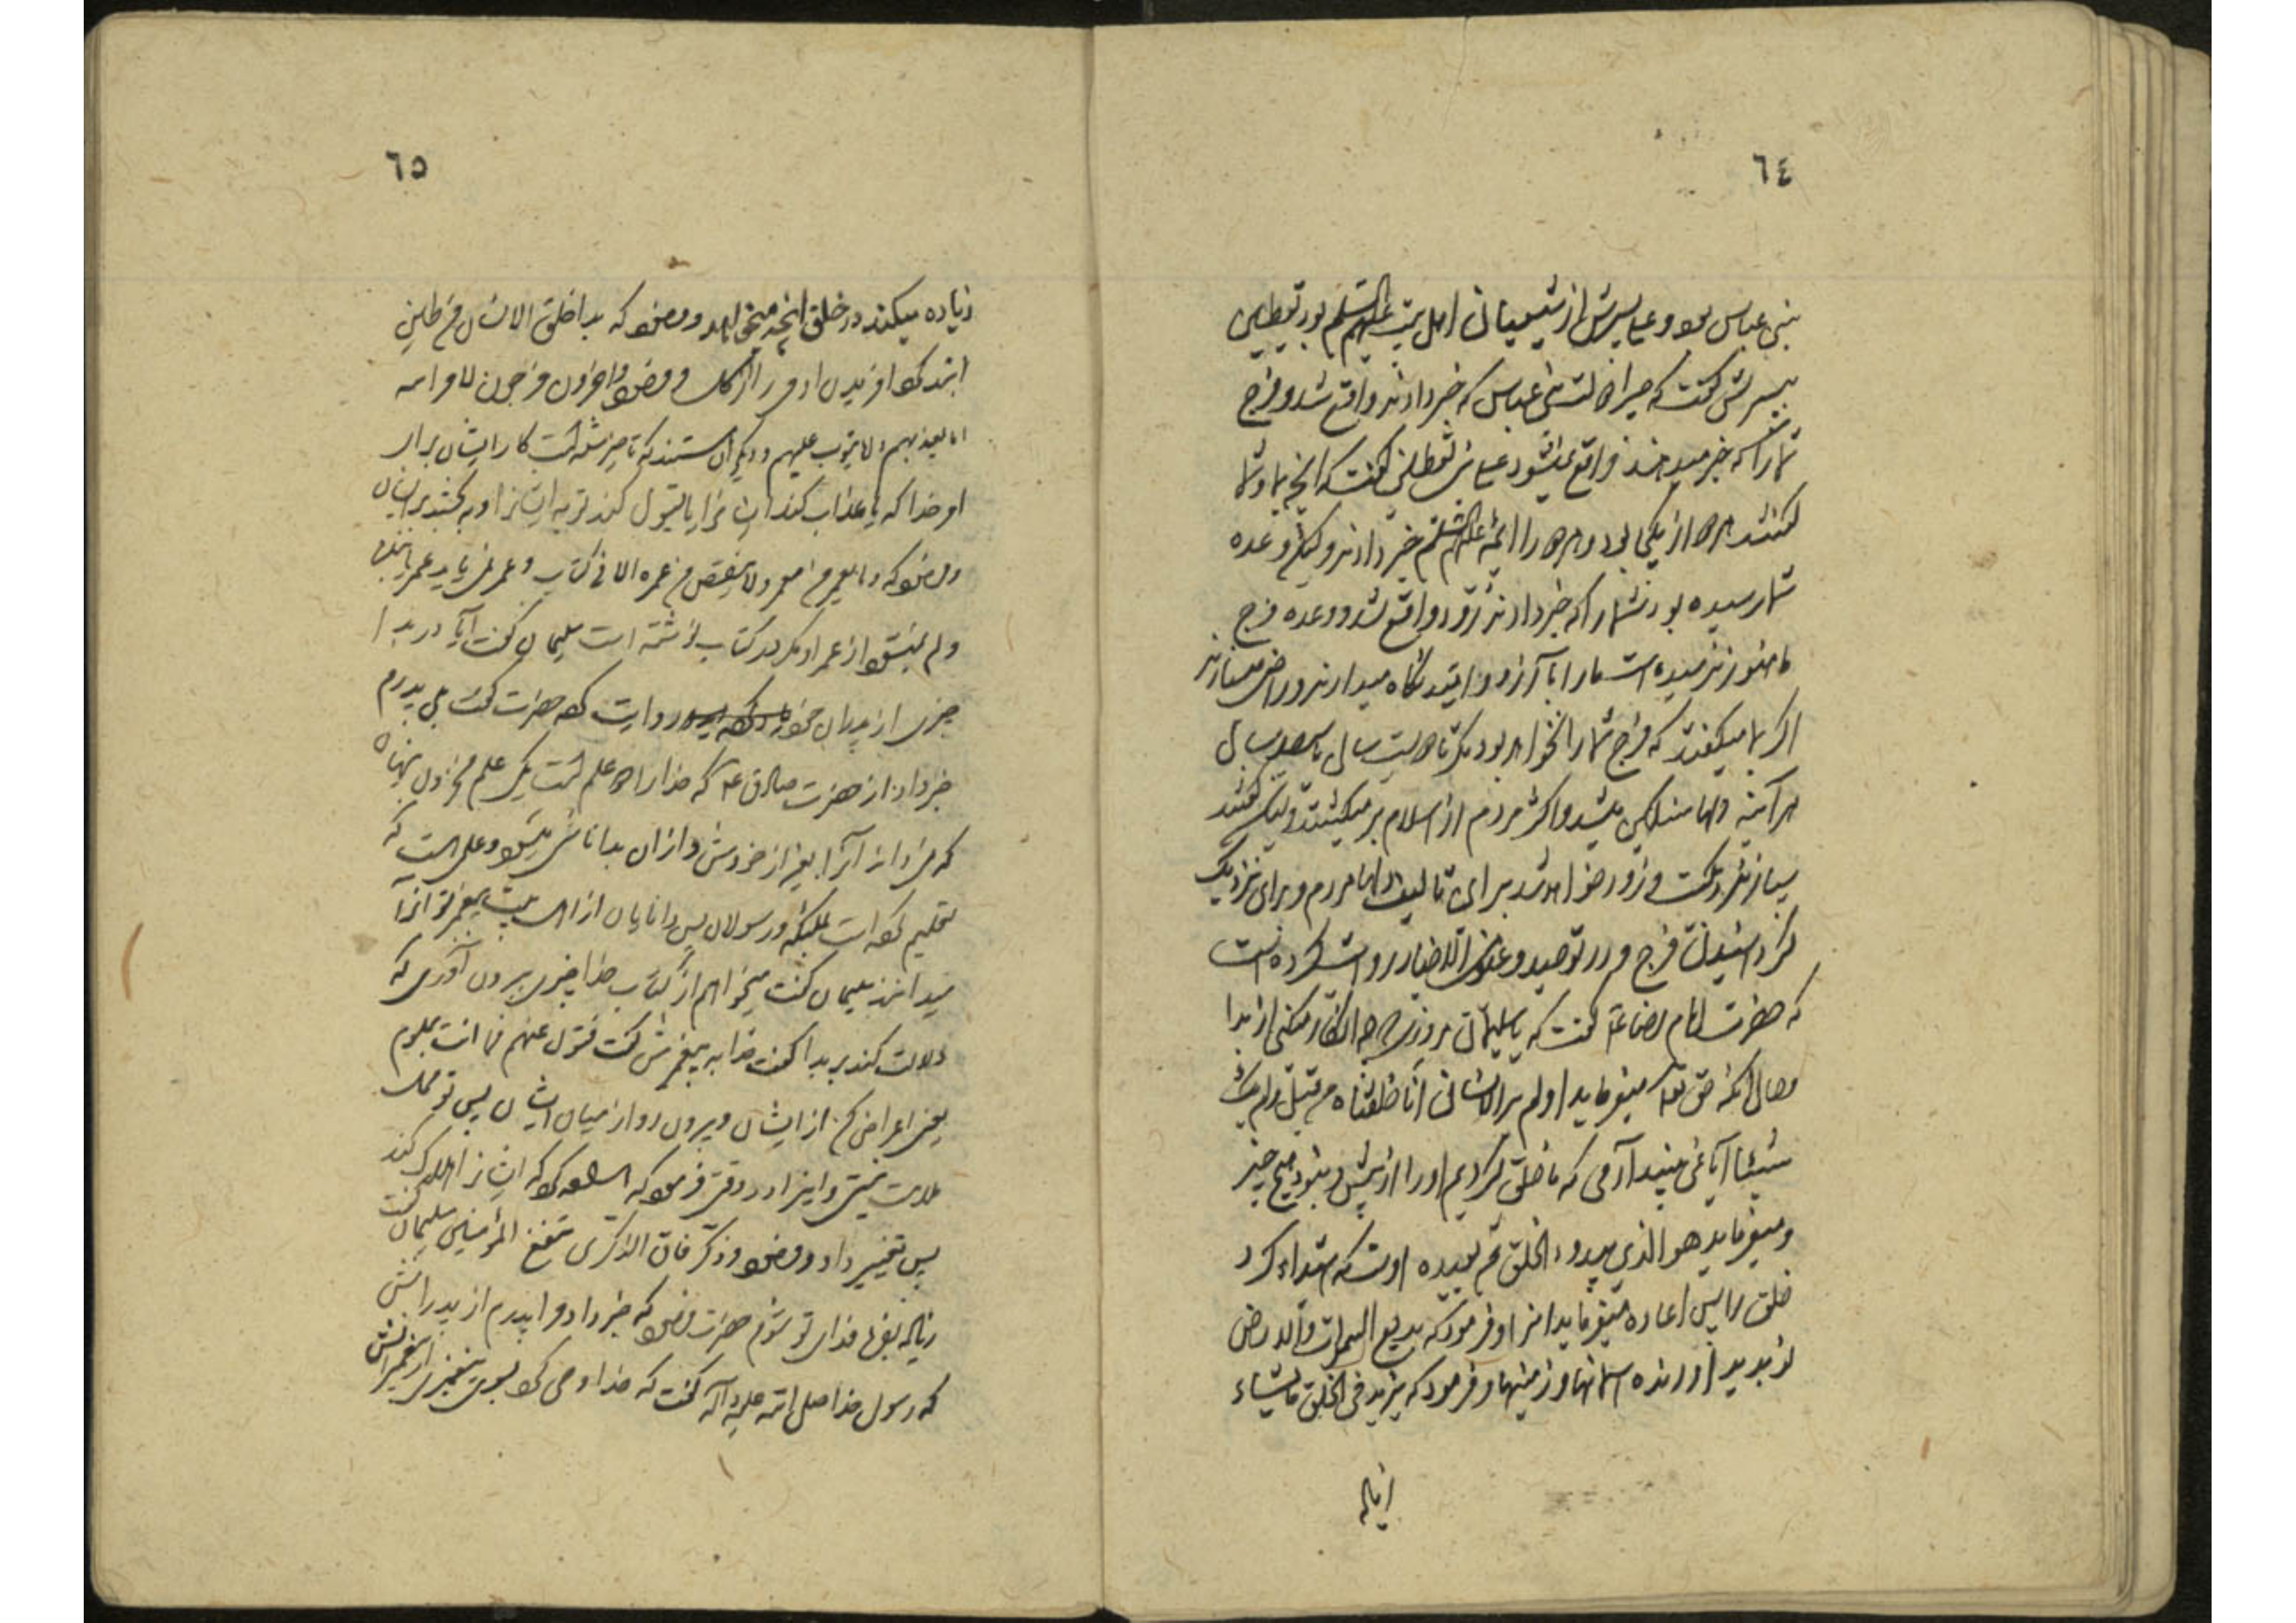 ٦٤
بنی عباس بود و علی پسرش از شیعیان اهل بیت علیهم السلم بود یقطین
بپسرش گفت که چرا دولت بنی عباس که خبر دادند واقع شد و فرج
شما را که خبر میدهند واقع نمیشود علی بن یقطین گفت که آنچه بما و شما
گفتند هر دو از یکجا بود و هر دو را ائمه علیهم السلم خبر دادند ولیکن وعده
شما رسیده بود شما را که خبر دادند زود واقع شد و وعده فرج
ما هنوز نرسیده است ما را بآرزو و امید نگاه میدارند و راضی میسازند
اگر بما میگفتند که فرج شما را نخواهد بود مگر تا دویست سال یا سیصد سال
هر آینه دلها سنگین میشد و اکثر مردم از اسلام بر میگشتند ولیک گفتند
بسیار نزدیکست و زود خواهد شد برای تالیف دلها مردم و برای نزدیک
گردانیدن فرج و در توحید و عیون الاخبار روایت کرده است
که حضرت امام رضا ع گفت که یا سلیمان مروزی چه انکار میکنی از بدا
و حال آنکه حق تع میفرماید اولم یر الانسان انا خلقناه من قبل ولم یک
شیئا آیا نمی بیند آدمی که ما خلق کردیم او را از پیش و نبود هیچ چیز
و میفرماید هو الذی یبدؤ الخلق ثم یعیده اوست که ابتداء کرد
خلق را پس اعاده میفرماید انرا و فرمود که بدیع السموات والارض
نو پدید آورنده اسمانها و زمینها و فرمود که یزید فی الخلق ما یشاء
زیاده
٦٥
زیاده میکند در خلق آنچه میخواهد و فرمود که بدا خلق الانسان من طین
ابتد کرد آفریدن ادم را از گل و فرمود و اخرون مرجون لامر الله
اما یعذبهم و اما یتوب علیهم و دیگران هستند که تاخیر شده است کار ایشان برای
امر خدا که یا عذاب کند ایشانرا یا قبول کند توبه ایشانرا و به بخشد بر ایشان
و فرمود که و ما یعمر من معمر ولا ینقص من عمره الا فی کتاب و عمر نمی یابد عمر یابنده
و کم نمیشود از عمر او مگر در کتاب نوشته است سلیمان گفت آیا در بدا
چیزی از پدران خود روایت کرده حضرت گفت بلی پدرم
خبر داد از حضرت صادق ع که خدا را دو علم است یک علم مخزون پنهان
که نمیداند آنرا بغیر از خودش و از ان بدا ناشی میشود و علمی هست که
تعلیم کرده است بملئکه و رسولان پس دانایان از اهل بیت پیغمبر تو آنرا
میدانند سلیمان گفت میخواهم از کتاب خدا چیزی بیرون آوری که
دلالت کند بر بدا گفت خدا به پیغمبرش گفت فتول عنهم فما انت بملوم
یعنی اعراض کن از ایشان و بیرون رو از میان ایشان پس تو محل
ملامت نیستی و اینرا در وقتی فرمود که اراده کرد که ایشانرا هلاک کند
پس تغییر داد و فرمود و ذکر فان الذکری تنفع المؤمنین سلیمان گفت
زیاده بفرما فدای تو شوم حضرت فرمود که خبر داد مرا پدرم از پدرانش
که رسول خدا صلی الله علیه و آله گفت که خدا وحی کرد بسوی پیغمبری از پیغمبرانش